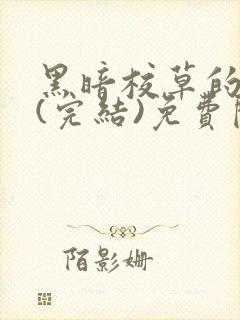 黑暗校草的
(完結)免費
陌影姗